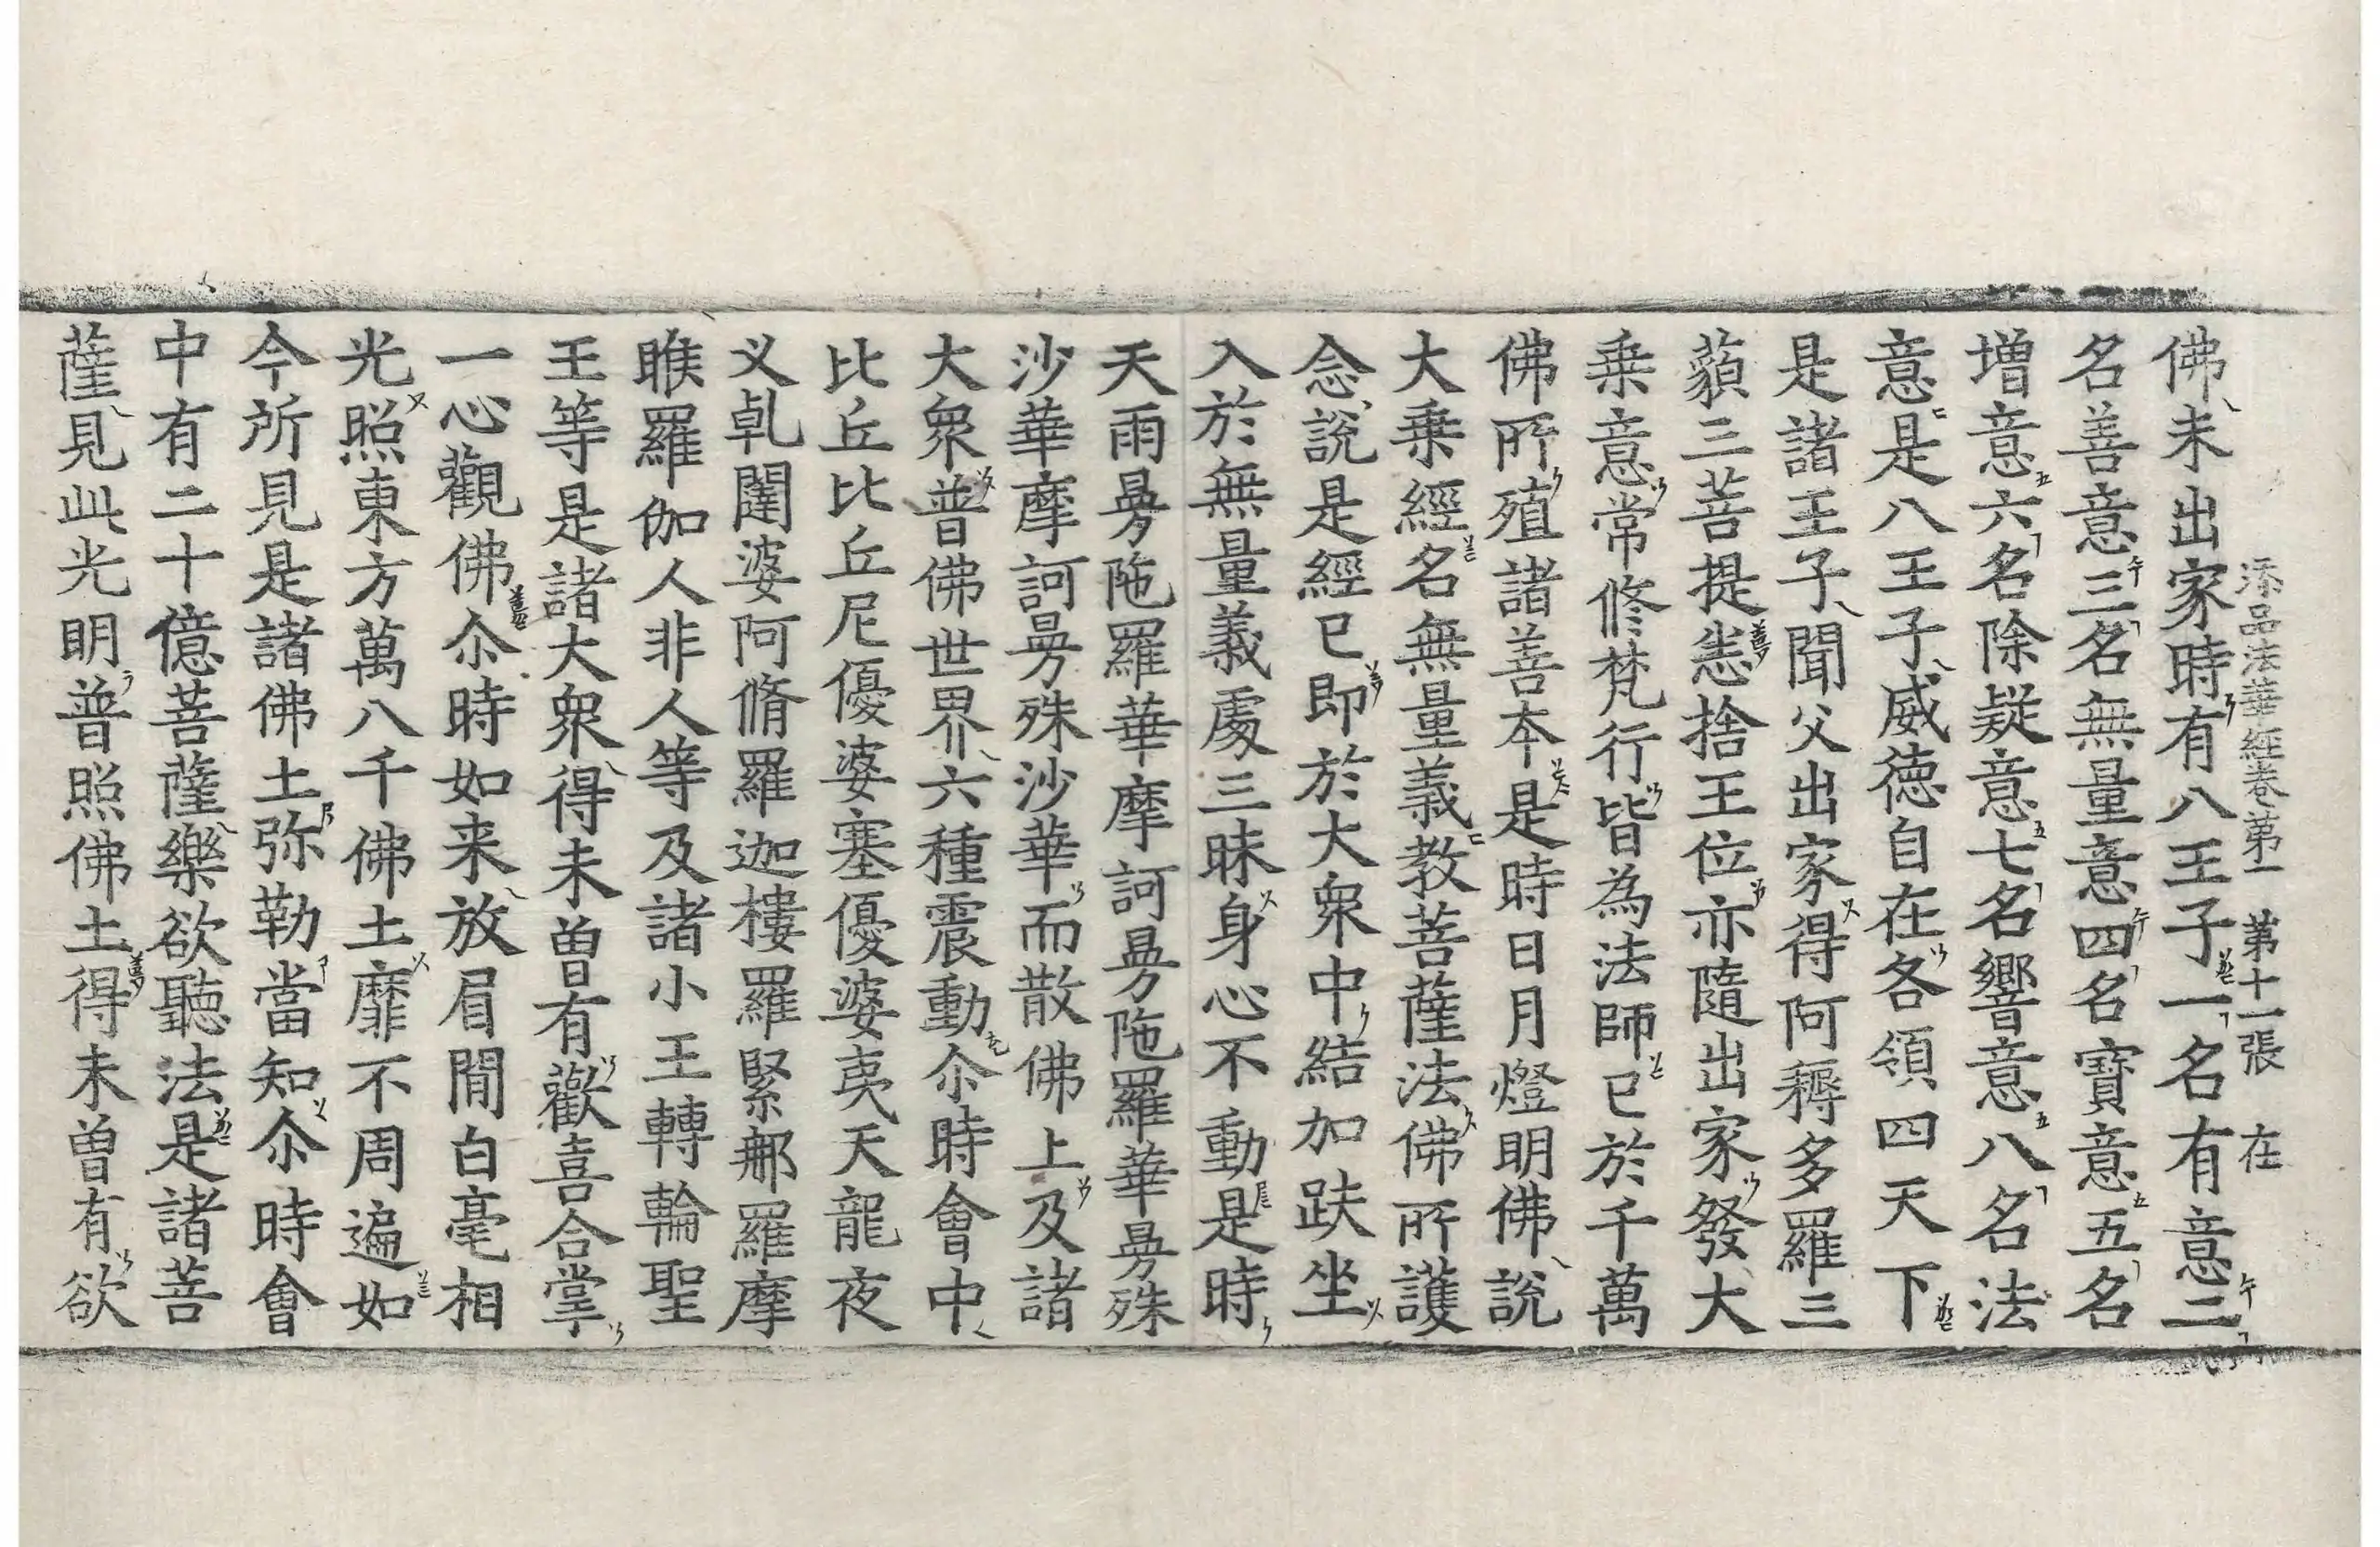 添品法華經卷第一 第十一張 在
佛未出家時有八王子一名有意二
名善意三名無量意四名寶意五名
增意六名除疑意七名響意八名法
意是八王子威德自在各領四天下
是諸王子聞父出家得阿耨多羅三
藐三菩提悉捨王位亦隨出家發大
乗意常修梵行皆為法師已於千萬
佛所殖諸善本是時日月燈明佛說
大乗經名無量義教菩薩法佛所護
念說是經已即於大衆中結加趺坐
入於無量義處三昧身心不動是時
天雨曼陁羅華摩訶曼陁羅華曼殊
沙華摩訶曼殊沙華而散佛上及諸
大衆普佛世界六種震動尒時會中
比丘比丘尼優婆塞優婆夷天龍夜
叉乹闥婆阿脩羅迦樓羅緊那羅摩
睺羅伽人非人等及諸小王轉輪聖
王等是諸大衆得未曾有歡喜合掌
一心觀佛尒時如来放眉間白毫相
光照東方萬八千佛土靡不周遍如
今所見是諸佛土弥勒當知尒時會
中有二十億菩薩樂欲聽法是諸菩
薩見此光明普照佛土得未曾有欲